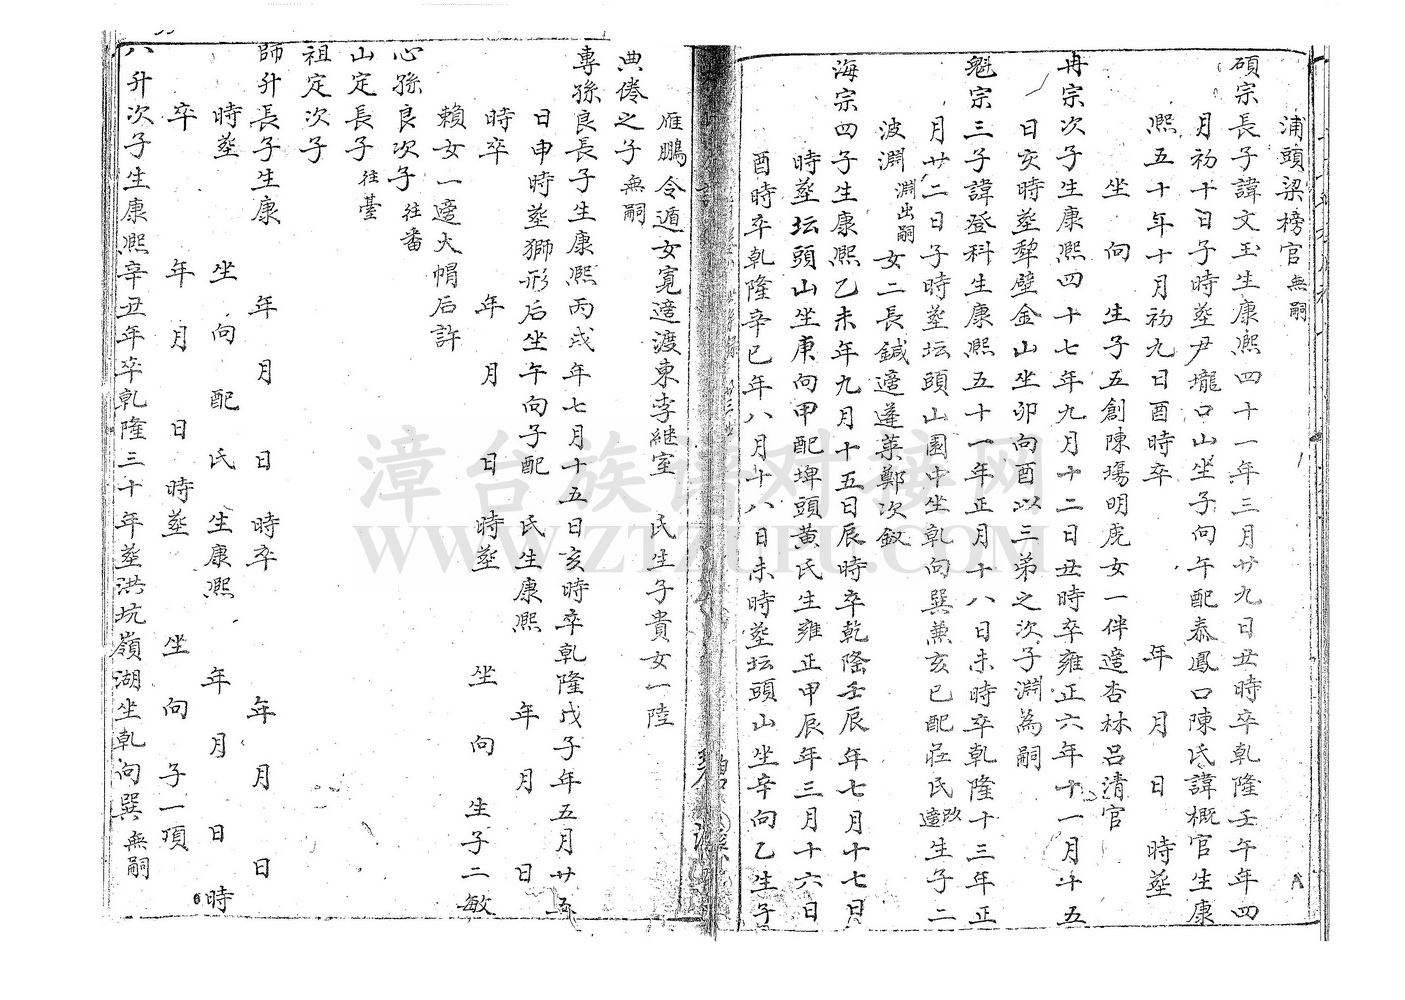 浦頭梁榜官無嗣
碩宗長子諱文玉生康熙四十一年三月廿九日丑時卒乾隆壬午年四
月初十日子時塟尹壠口山坐子向午配泰鳳口陳氏諱概官生康
熙五十年十月初九日酉時卒 年 月 日 時塟
坐 向 生子五創陳瑒明虎女一伴適杏林呂清官
冉宗次子生康熙四十七年九月十二日丑時卒雍正六年十一月十五
日亥時塟犂壁金山坐卯向酉以三弟之次子淵為嗣
魁宗三子諱登科生康熙五十一年正月十八日未時卒乾隆十三年正
月廿二日子時塟坛頭山園中坐乾向巽兼亥巳配莊氏改適生子二
波淵淵出嗣 女二長鍼適蓬萊鄭次釵
海宗四子生康熙乙未年九月十五日辰時卒乾隆壬辰年七月十七日
時塟坛頭山坐庚向甲配埤頭黃氏生雍正甲辰年三月十六日
酉時卒乾隆辛巳年八月十八日未時塟坛頭山坐辛向乙生子
雁鵬令遁女寬適渡東李繼室 氏生子貴女一陸
典倦之子無嗣
專孫良長子生康熙丙戌年七月十五日亥時卒乾隆戊子年五月廿五
日申時塟獅形后坐午向子配 氏生康熙 年 月 日
時卒 年 月 日 時塟 坐 向 生子二敏
賴女一適大帽后許
心孫良次子往番
山定長子往臺
祖定次子
師升長子生康 年 月 日 時卒 年 月 日
時塟 坐 向 配 氏 生康熙 年 月 日 時
卒 年 月 日 時塟 坐 向 子一項
八升次子生康熙辛丑年卒乾隆三十年塟洪坑嶺湖坐乾向巽無嗣
漳台族谱对接网
WWW.ZTZUPU.COM